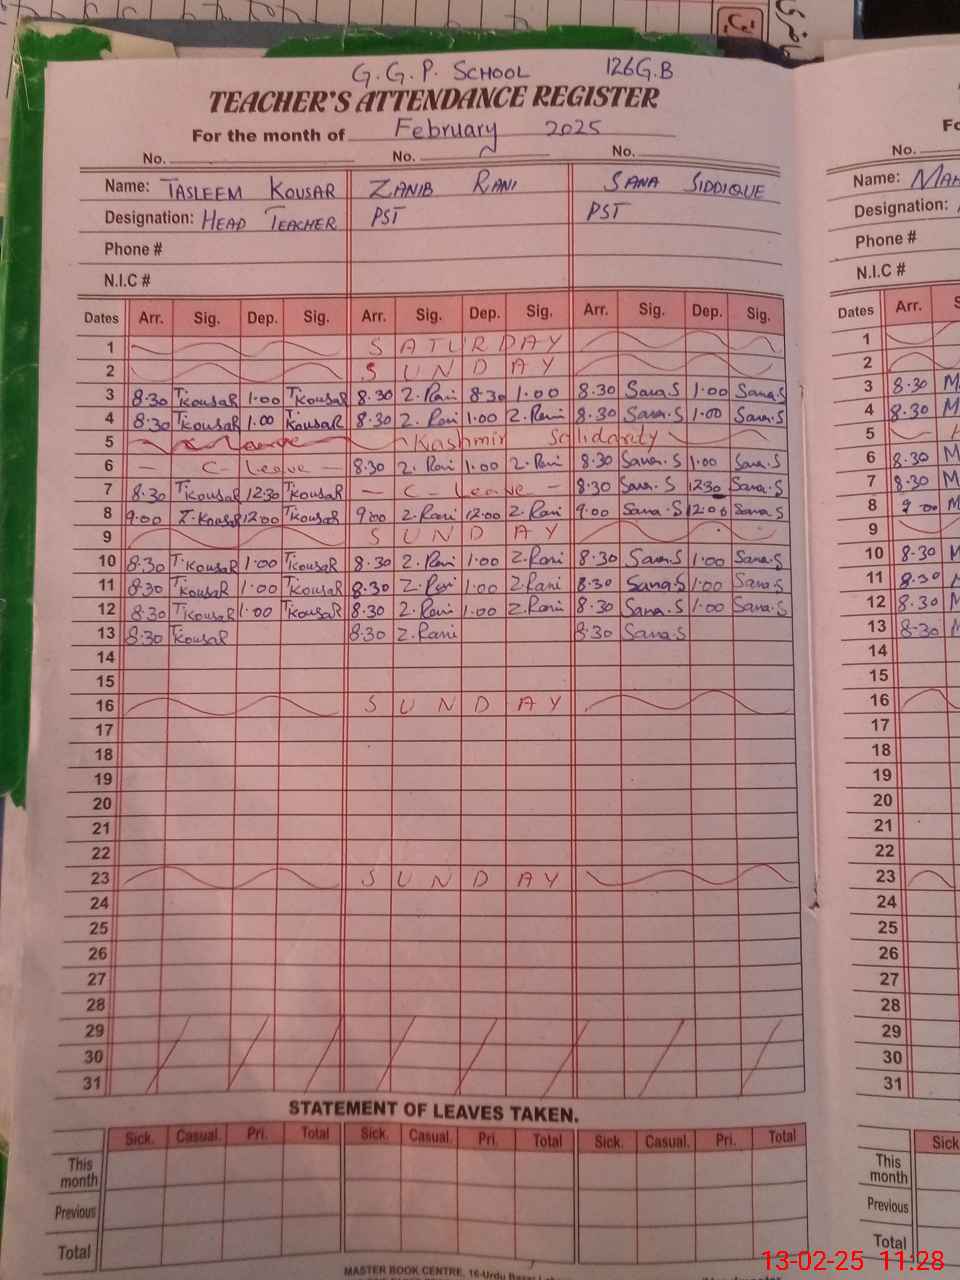 G.G.P. SCHOOL 126G.B
TEACHER'S ATTENDANCE REGISTER
For the month of February 2025
No. No. No. No.
Name: TASLEEM KOUSAR ZANIB RANI SANA SIDDIQUE Name:
Designation: HEAD TEACHER PST PST Designation:
Phone # Phone #
N.I.C # N.I.C #
Dates Arr. Sig. Dep. Sig. Arr. Sig. Dep. Sig. Arr. Sig. Dep. Sig. Dates Arr.
1 SATURDAY 1
2 SUNDAY 2
3 8:30 T.KousaR 1:00 T.KousaR 8:30 Z.Rani 8:30 1:00 8:30 Sana.S 1:00 Sana.S 3 8:30
4 8:30 T.KousaR 1:00 T.KousaR 8:30 Z.Rani 1:00 Z.Rani 8:30 Sana.S 1:00 Sana.S 4 8:30
5 Kashmir Solidarity 5
6 — C-Leave — 8:30 Z.Rani 1:00 Z.Rani 8:30 Sana.S 1:00 Sana.S 6 8:30
7 8:30 T.KousaR 12:30 T.KousaR — C-Leave — 8:30 Sana.S 12:30 Sana.S 7 8:30
8 9:00 T.KousaR 12:00 T.KousaR 9:00 Z.Rani 12:00 Z.Rani 9:00 Sana.S 12:00 Sana.S 8 9:00
9 SUNDAY 9
10 8:30 T.KousaR 1:00 T.KousaR 8:30 Z.Rani 1:00 Z.Rani 8:30 Sana.S 1:00 Sana.S 10 8:30
11 8:30 T.KousaR 1:00 T.KousaR 8:30 Z.Rani 1:00 Z.Rani 8:30 Sana.S 1:00 Sana.S 11 8:30
12 8:30 T.KousaR 1:00 T.KousaR 8:30 Z.Rani 1:00 Z.Rani 8:30 Sana.S 1:00 Sana.S 12 8:30
13 8:30 T.KousaR 8:30 Z.Rani 8:30 Sana.S 13 8:30
14 14
15 15
16 SUNDAY 16
17 17
18 18
19 19
20 20
21 21
22 22
23 SUNDAY 23
24 24
25 25
26 26
27 27
28 28
29 29
30 30
31 31
STATEMENT OF LEAVES TAKEN.
Sick. Casual. Pri. Total Sick. Casual. Pri. Total Sick. Casual. Pri. Total
This month This month
Previous Previous
Total Total
MASTER BOOK CENTRE, 16-Urdu
13-02-25 11:28